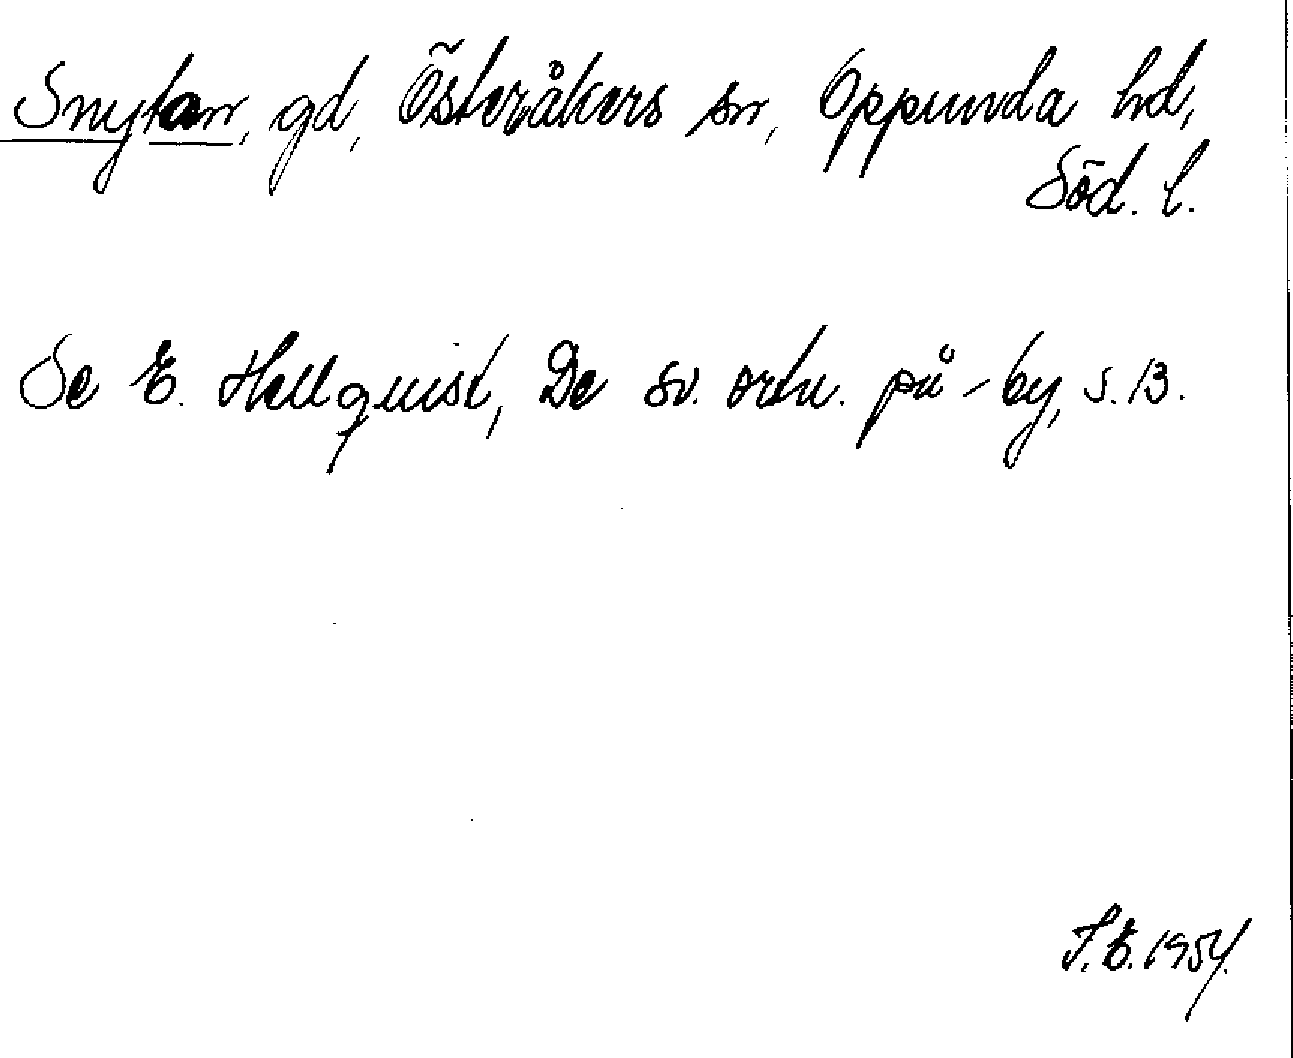 Snytan, gd, Österåkers sn, Oppunda hd,
Söd. l.
Se E. Hellquist, De sv. ortn. på -by, s. 13.
S.E. 1954.